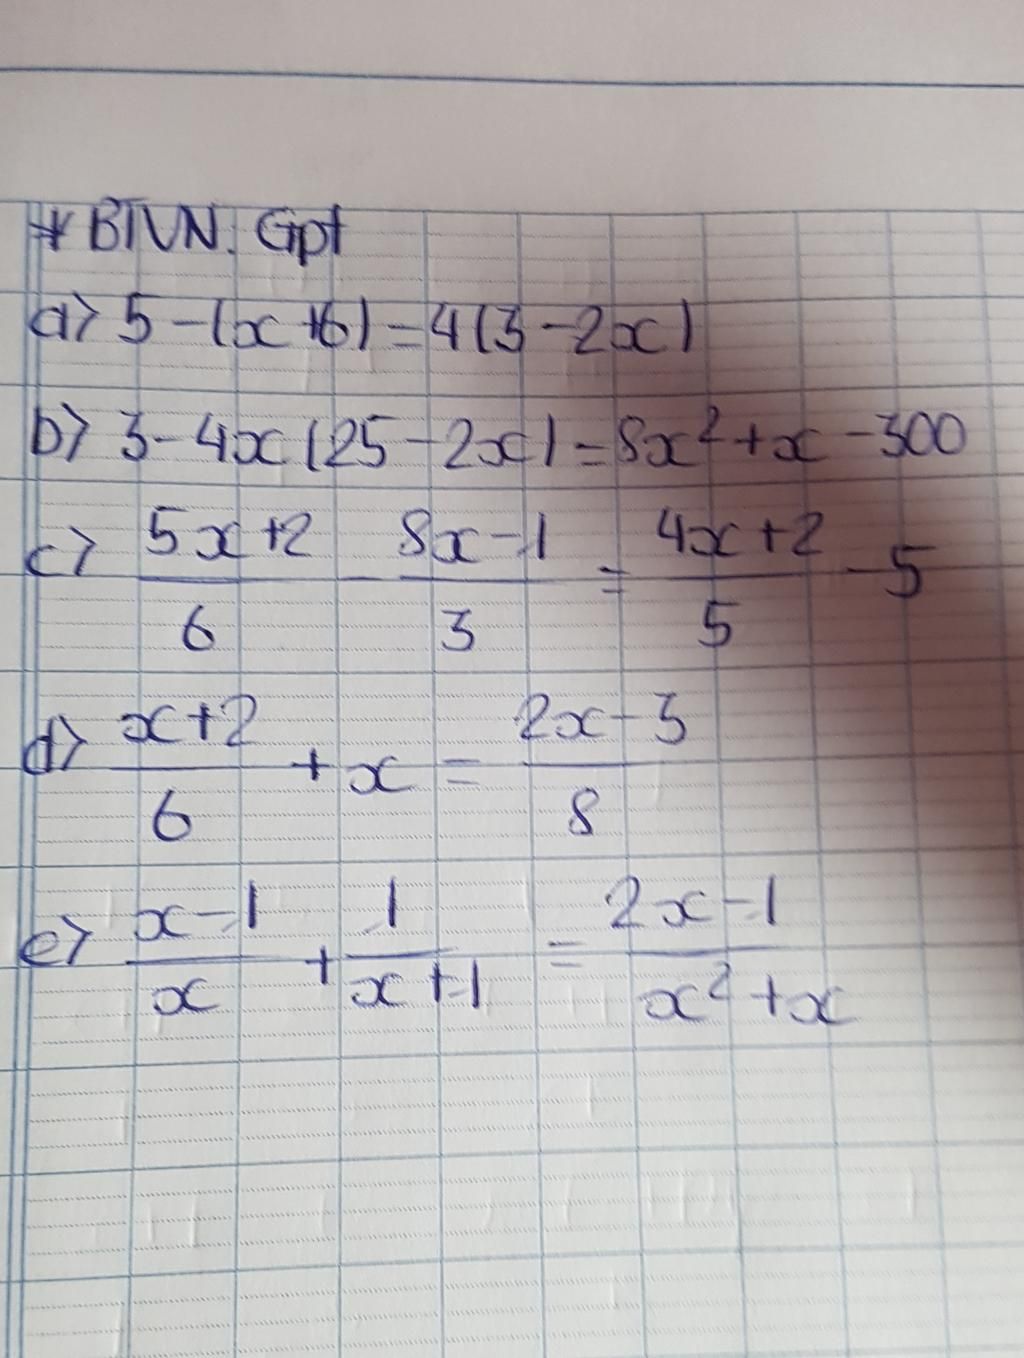 * BTVN: Gpt
a) 5-(x+6)=4(3-2x)
b) 3-4x(25-2x)=8x²+x-300
c) (5x+2)/6 - (8x-1)/3 = (4x+2)/5 - 5
d) (x+2)/6 + x = (2x-3)/8
e) (x-1)/x + 1/(x+1) = (2x-1)/(x²+x)